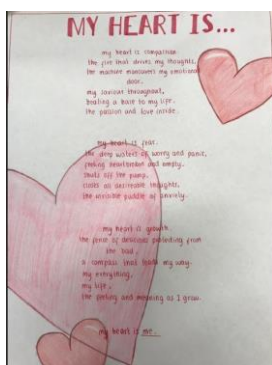 MY HEART IS...
my heart is compassion.
the fire that drives my thoughts,
the machine maneuvers my emotional
door,
my saviour throughout,
beating a base to my life.
the passion and love inside.
my heart is fear.
the deep waters of worry and panic,
feeling heartbroken and empty.
shuts off the pump,
the invisible puddle of anxiety.
my heart is growth.
the bad,
a compass that leads my way.
my everything,
my life,
the feeling and meaning as I grow.
my heart is me.